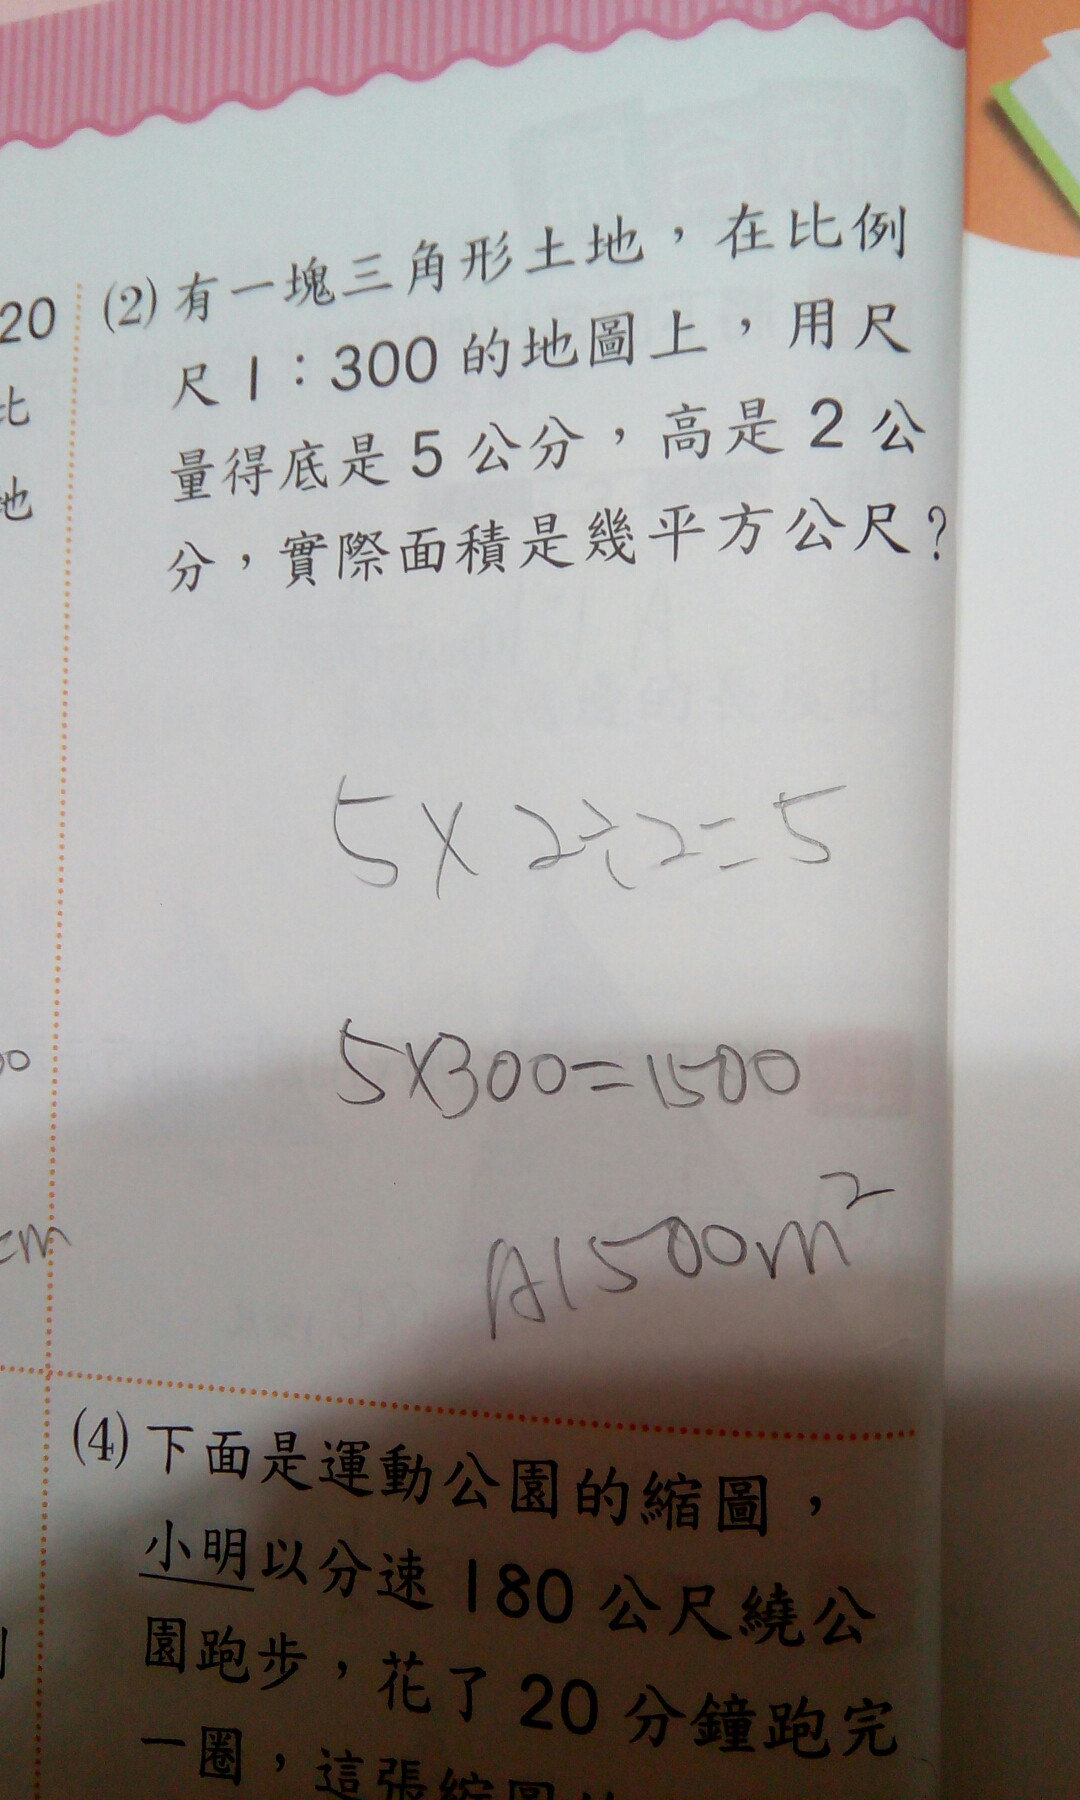 20
比
地
(2) 有一塊三角形土地，在比例
尺 1：300 的地圖上，用尺
量得底是 5 公分，高是 2 公
分，實際面積是幾平方公尺？
5×2÷2=5
5×300=1500
A1500m²
cm
(4) 下面是運動公園的縮圖，
小明以分速 180 公尺繞公
園跑步，花了 20 分鐘跑完
一圈，這張縮圖